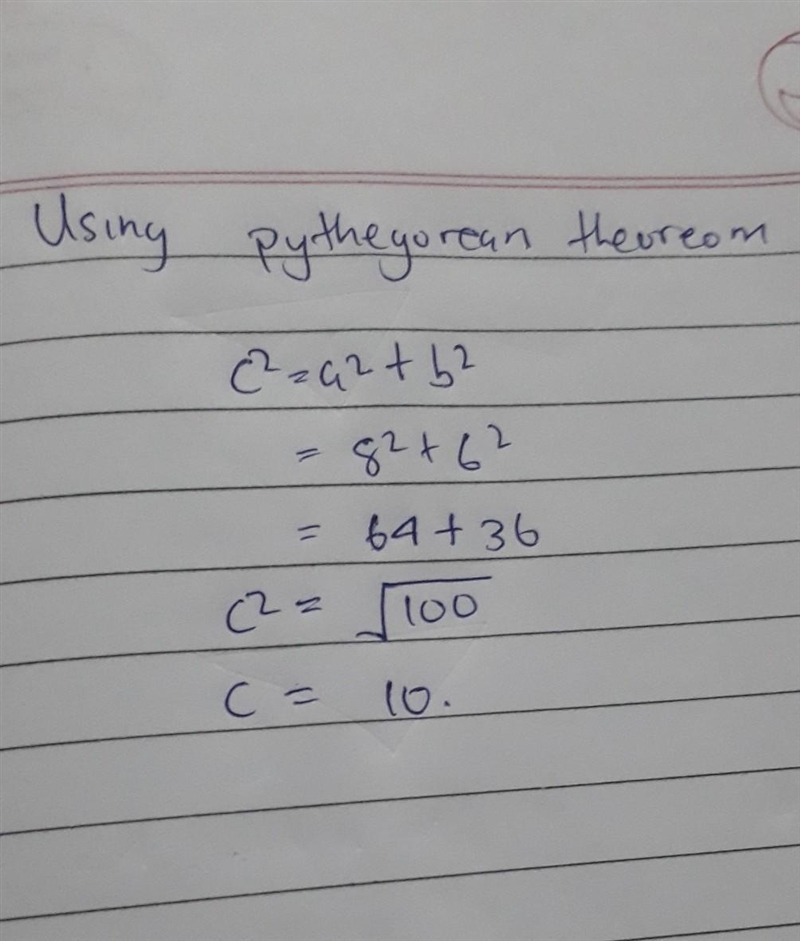 Using pythegorean theoreom
c² = a² + b²
= 8² + 6²
= 64 + 36
c² = √100
c = 10.